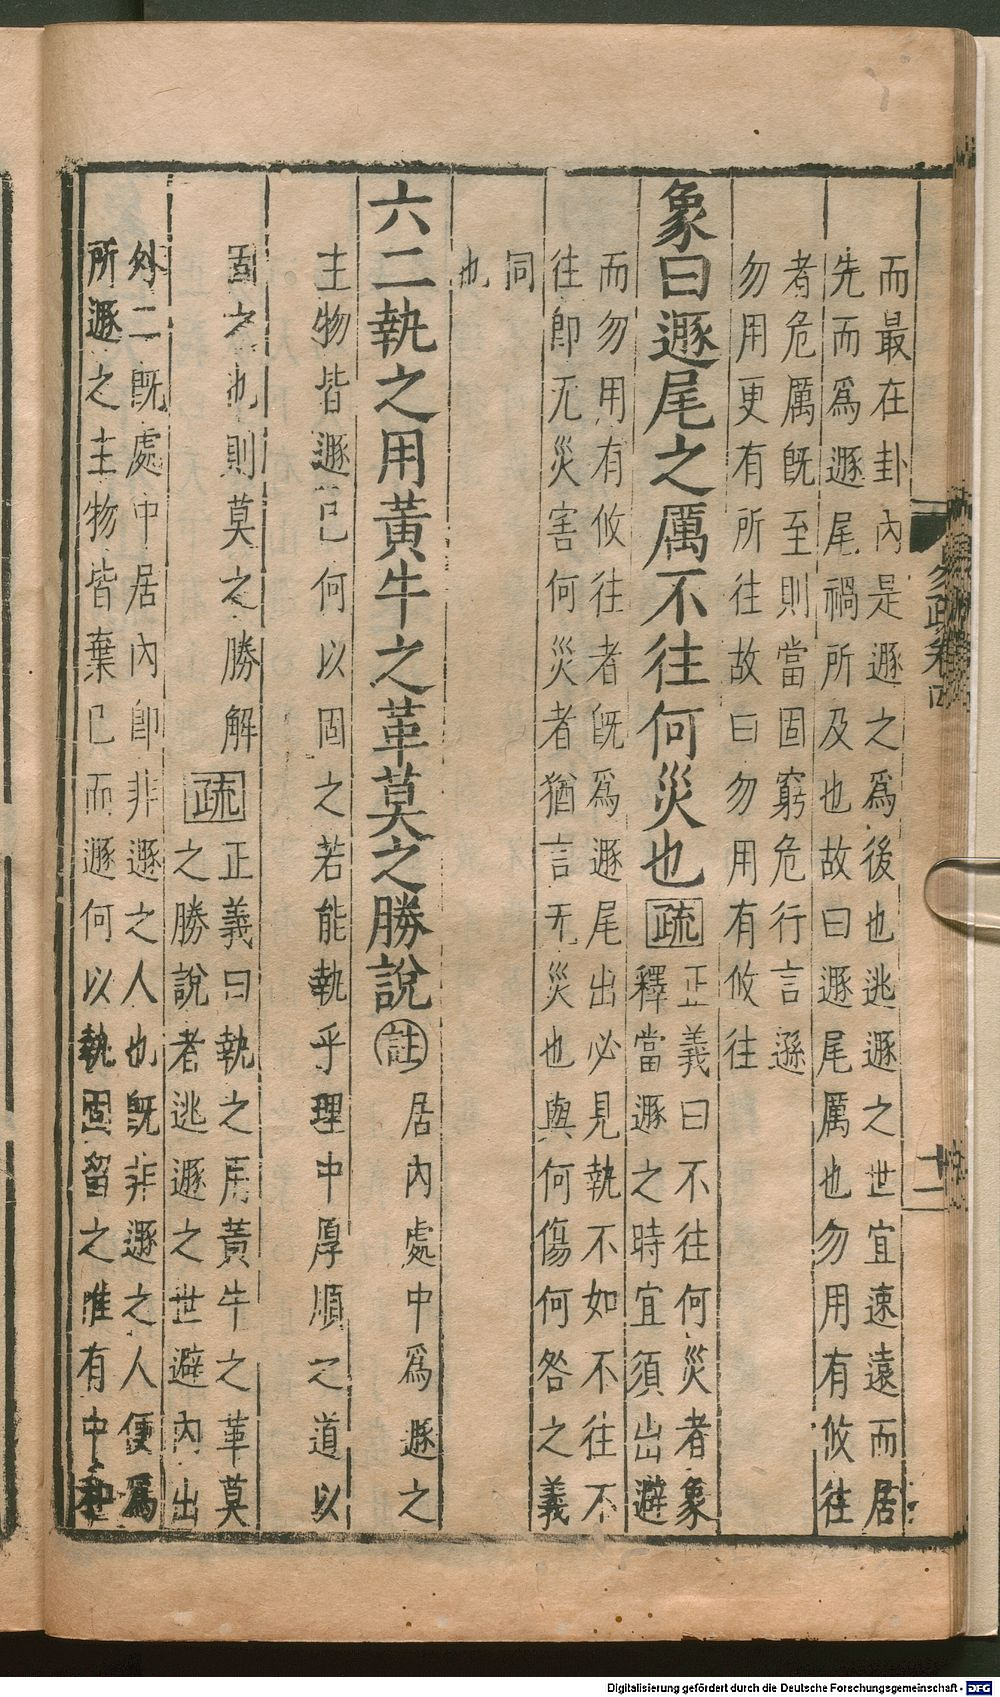 而最在卦內是遯之爲後也逃遯之世宜速遠而居
先而爲遯尾禍所及也故曰遯尾厲也勿用有攸往
者危厲旣至則當固窮危行言遜
勿用更有所往故曰勿用有攸往
象曰遯尾之厲不往何災也疏
正義曰不往何災者象
釋當遯之時宜須出避
而勿用有攸往者旣爲遯尾出必見執不如不往不
往卽无災害何災者猶言无災也與何傷何咎之義
同
也
六二執之用黃牛之革莫之勝說註
居內處中爲遯之
主物皆遯己何以固之若能執乎理中厚順之道以
固之也則莫之勝解疏
正義曰執之用黃牛之革莫
之勝說者逃遯之世避內出
外二旣處中居內卽非遯之人也旣非遯之人便爲
所遯之主物皆棄己而遯何以執固留之惟有中和
易疏卷四
十二
Digitalisierung gefördert durch die Deutsche Forschungsgemeinschaft - DFG